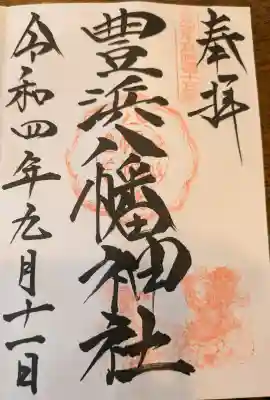 奉拝
豊浜八幡神社
令和四年九月十一日